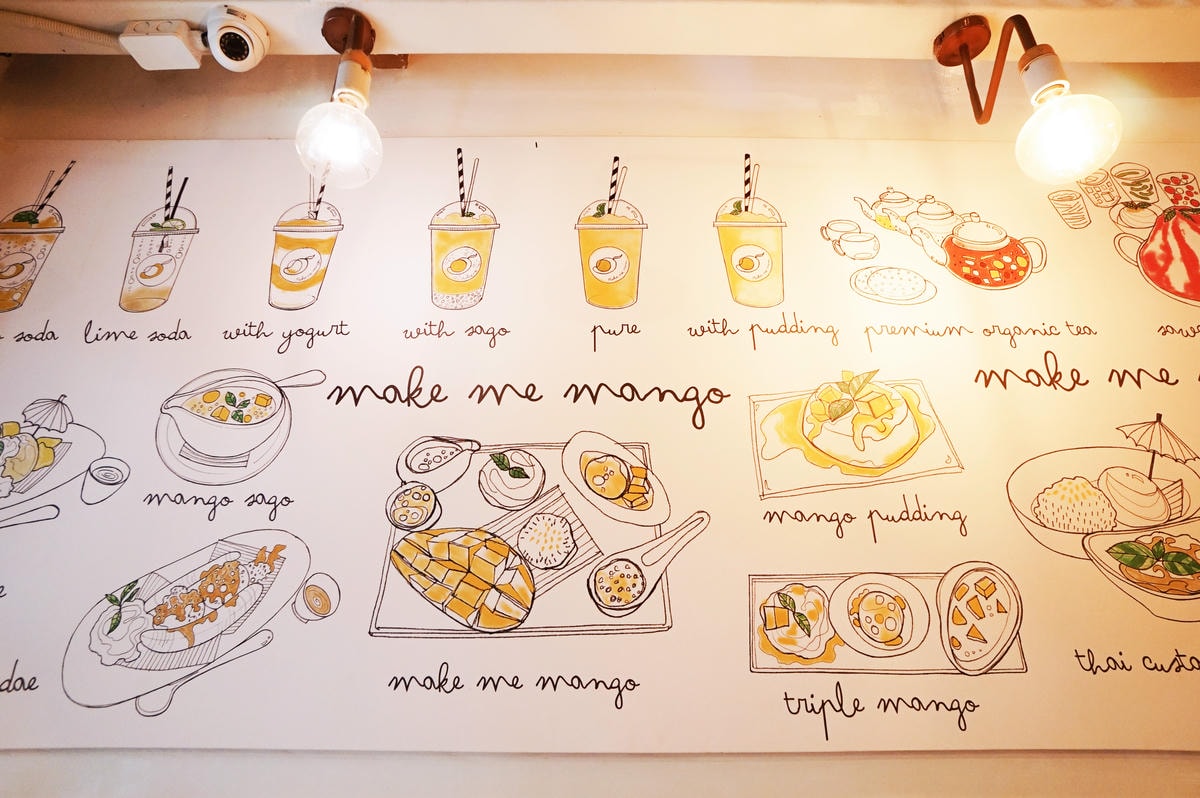 soda
lime soda
with yogurt
with sago
pure
with pudding
premium organic tea
make me mango
make me
mango sago
mango pudding
dae
make me mango
triple mango
thai custa